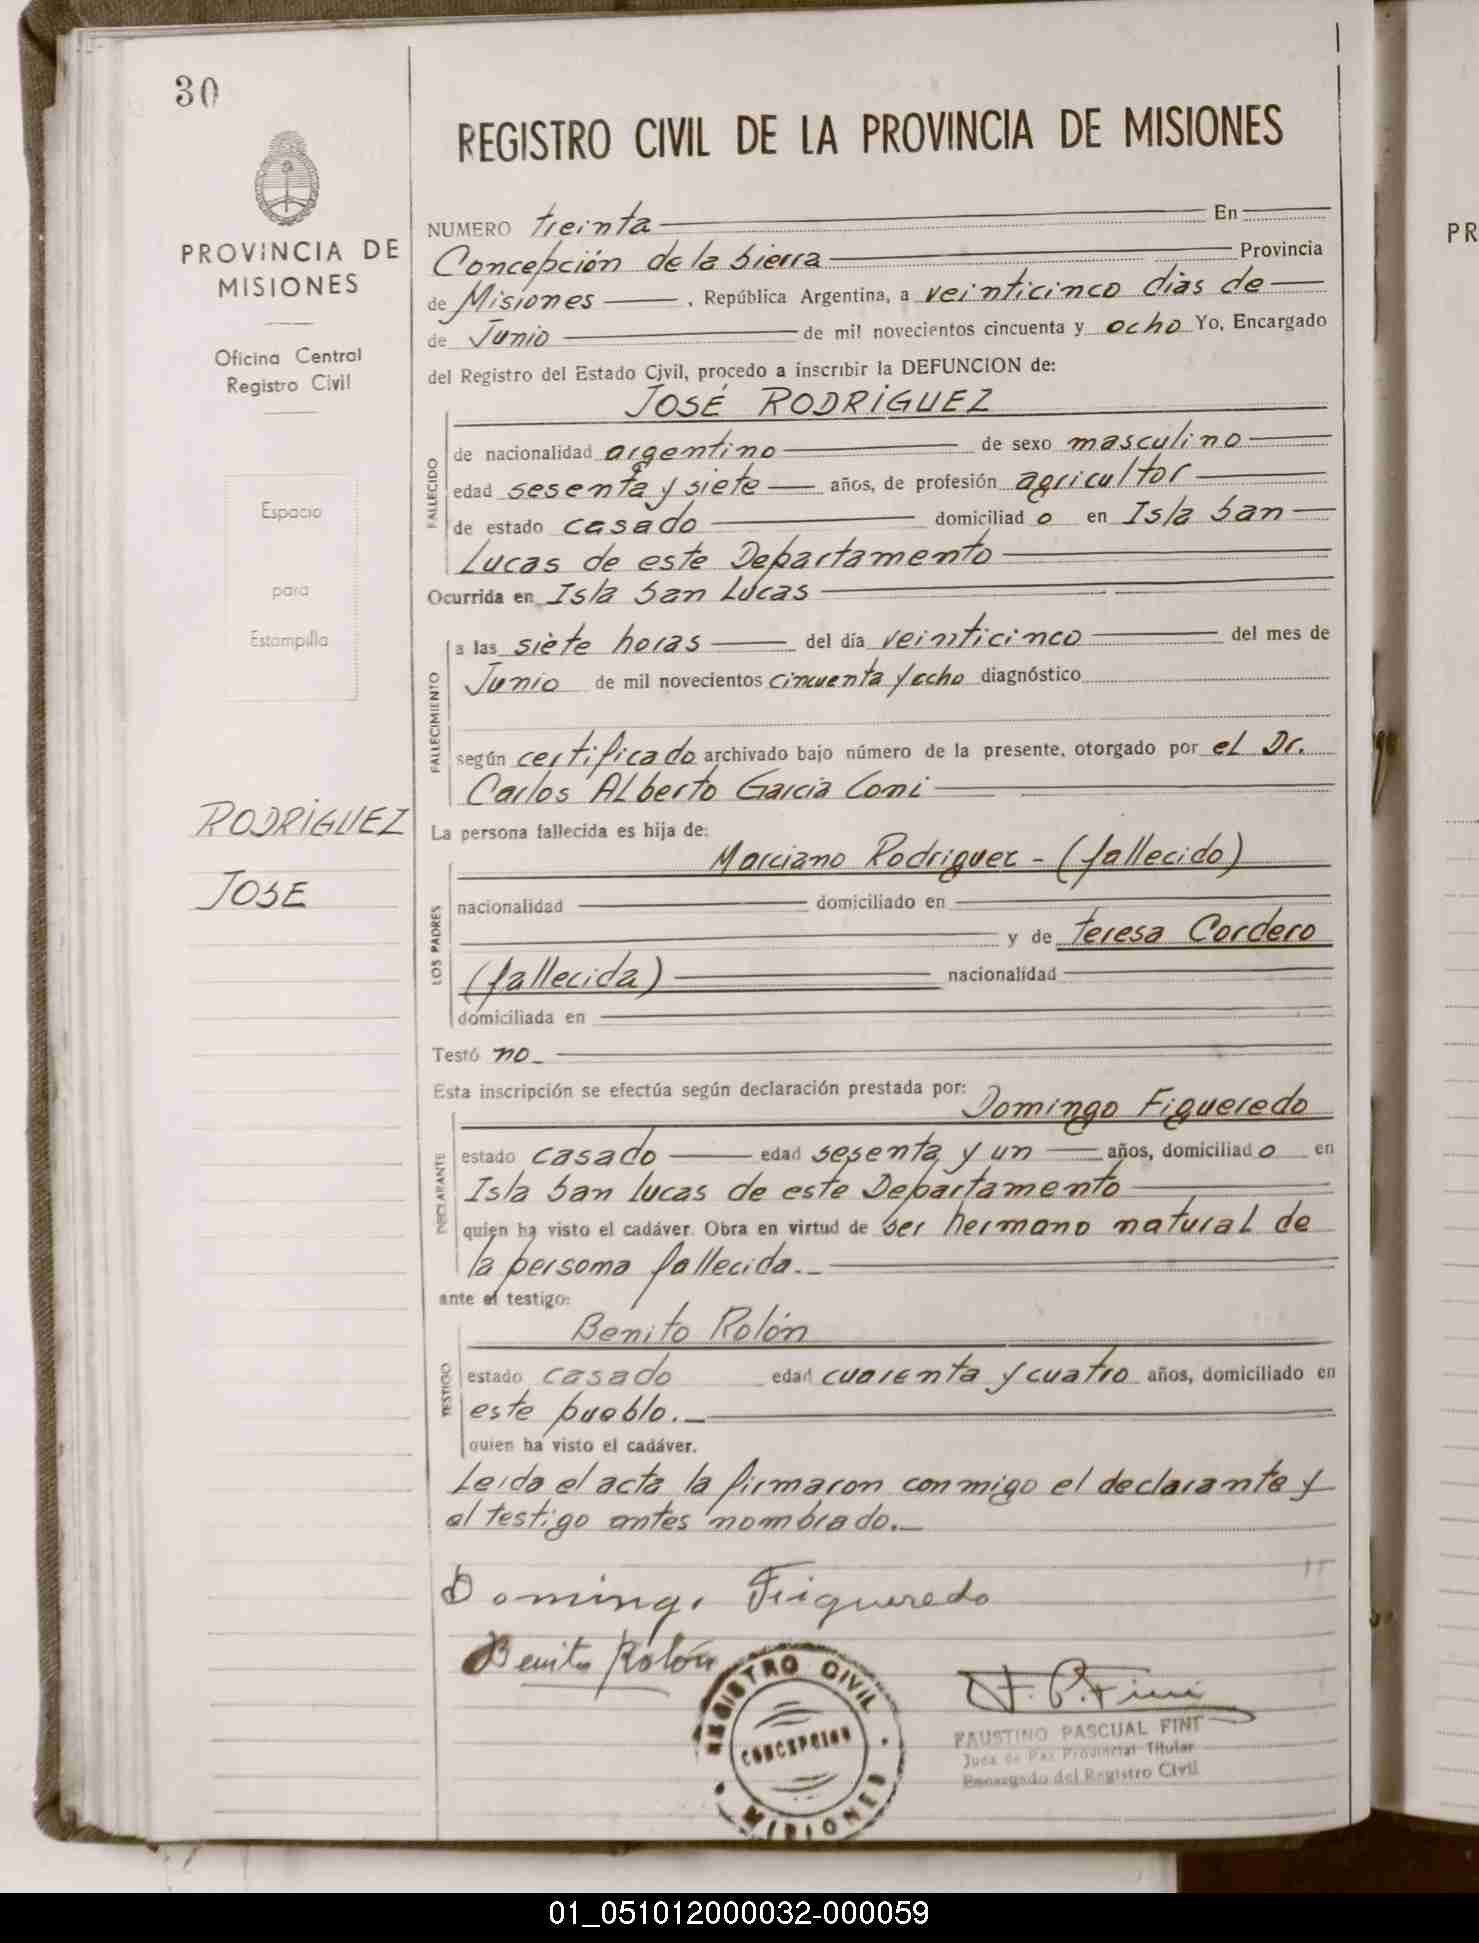 30
PROVINCIA DE
MISIONES
Oficina Central
Registro Civil
Espacio
para
Estampilla
RODRIGUEZ
JOSE
REGISTRO CIVIL DE LA PROVINCIA DE MISIONES
NUMERO treinta En
Concepción de la Sierra Provincia
de Misiones, República Argentina, a veinticinco dias de
de Junio de mil novecientos cincuenta y ocho Yo, Encargado
del Registro del Estado Civil, procedo a inscribir la DEFUNCION de:
JOSÉ RODRIGUEZ
FALLECIDO
de nacionalidad argentino de sexo masculino
edad sesenta y siete años, de profesión agricultor
de estado casado domiciliado en Isla San
Lucas de este Departamento
Ocurrida en Isla San Lucas
FALLECIMIENTO
a las siete horas del día veinticinco del mes de
Junio de mil novecientos cincuenta y ocho diagnóstico
según certificado archivado bajo número de la presente, otorgado por el Dr.
Carlos Alberto Garcia Comi
La persona fallecida es hija de:
LOS PADRES
Marciano Rodriguez - (fallecido)
nacionalidad domiciliado en
y de teresa Cordero
(fallecida) nacionalidad
domiciliada en
Testó no
Esta inscripción se efectúa según declaración prestada por:
DECLARANTE
Domingo Figueredo
estado casado edad sesenta y un años, domiciliado en
Isla San Lucas de este Departamento
quien ha visto el cadáver. Obra en virtud de ser hermano natural de
la persona fallecida.
ante el testigo:
TESTIGO
Benito Rolón
estado casado edad cuarenta y cuatro años, domiciliado en
este pueblo.
quien ha visto el cadáver.
Leida el acta la firmaron conmigo el declarante y
el testigo antes nombrado.
Domingo Figueredo
Benito Rolón
REGISTRO CIVIL
CONCEPCION
MISIONES
F. P. Fini
FAUSTINO PASCUAL FINI
Juez de Paz Provincial Titular
Encargado del Registro Civil
PR
01_051012000032-000059